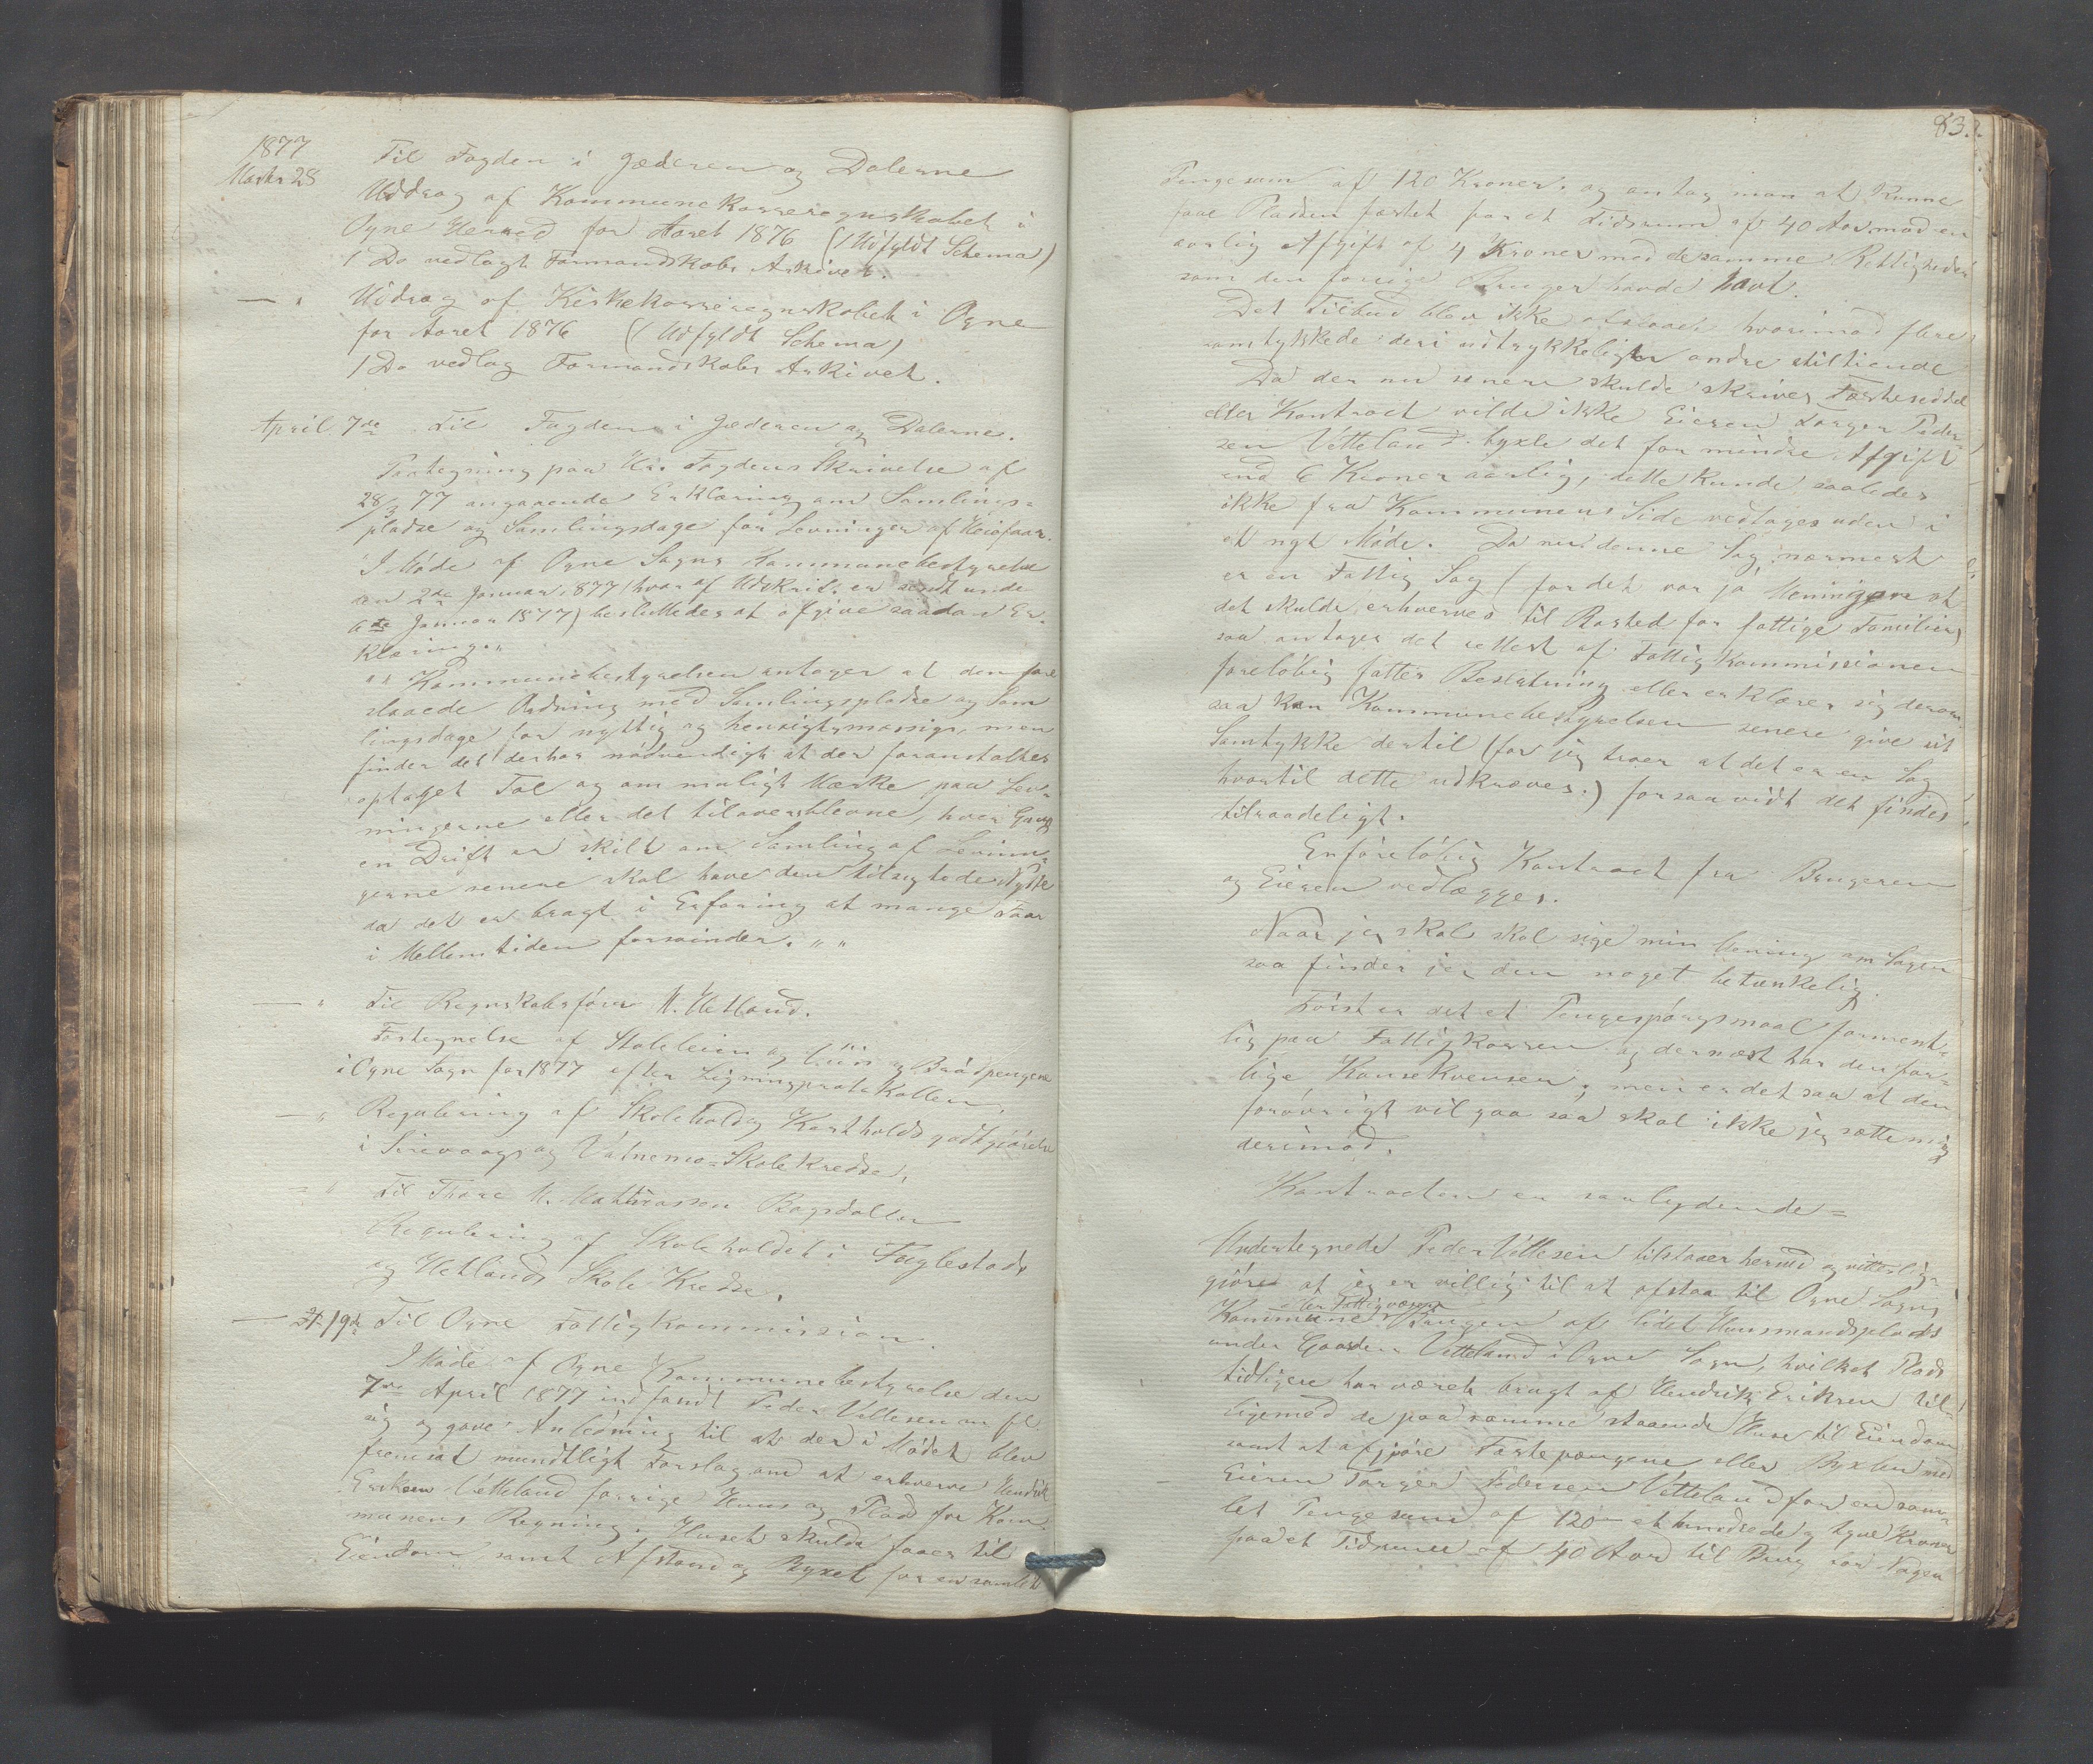 1877
Marts 28
Til Fogden i Jæderen og Dalerne
Uddrag af Kommunekasseregnskabet i
Ogne Herred for Aaret 1876 (1 Udfyldt Schema)
1 Do vedlagt Formandskabs Arkivet.
— " Uddrag af Kirkekasseregnskabet i Ogne
for Aaret 1876 (1 Udfyldt Schema)
1 Do vedlag Formandskabs Arkivet.
April 7de Til Fogden i Jæderen og Dalerne.
Paategning paa Hr. Fogdens Skrivelse af
28/3 77 angaaende Erklæring om Samlings-
pladse og Samlingsdage for Levninger af Heiefaar.
"I Møde af Ogne Sogns Kommunebestyrelse
den 2de Januar 1877 (hvor af Udskrift er sendt unde
6te Januar 1877) besluttedes at afgive saadan Er-
klæring."
"" Kommunebestyrelsen antager at den fore
slaaede Ordning med Samlingspladse og Sam
lingsdage for nyttig og hensigtsmæssige, men
finder det derhos nødvendigt at der foranstaltes
optaget Tal og om muligt Mærke paa Lev-
ningerne eller det tiloversblevne, hver Gang
en Drift er skilt om Samling af Levnin-
gerne senere skal have den tilsigtede Nytte
da det er bragt i Erfaring at mange Faar
i Mellemtiden forsvinder. ""
— " Til Regnskabsfører M. Hetland.
Fortegnelse af Stoleleien og Liin og Brødpengene
i Ogne Sogn for 1877 efter Ligningsprotokollen.
— " Regulering af Skolehold og Kostholds godtgjørelse
i Sirevaags og Vatnemo-Skolekredse.
— " Til Thore M. Mathiassen Bogsdallen
Regulering af Skoleholdet i Fuglestads
og Hetlands Skole Kredse.
— 19de Til Ogne Fattigkommission
I Møde af Ogne Kommunebestyrelse den
7de April 1877 indfandt Peder Villesen m fl.
sig og gave Anledning til at der i Mødet blev
fremsat mundtligt Forslag om at erhverve Hendrik
Eriksen Vetteland forrige Huus og Plads for Kom-
munens Regning. Huset skulde faaes til
Eiendom, samt Afstand og Byxel for en samlet
83.
Pengesum af 120 Kroner. og antog man at kunne
faae Pladsen fæstet for et Tidsrum af 40 Aar mod en
aarlig Afgift af 4 Kroner med de samme Rettigheder
som den forrige Bruger havde havt.
Det Tilbud blev ikke afslaaet hvorimod flere
samtykkede deri udtrykkeligen andre stiltiende
Da der nu senere skulde skrives Fæsteseddel
eller Kontract vilde ikke Eieren Torger Peder-
sen Vetteland byxle det for mindre Afgift
end 6 Kroner aarlig, dette kunde saaledes
ikke fra Kommunens Side vedtages uden i
et nyt Møde. Da nu denne Sag nærmest
er en Fattig Sag (for det var jo Meningen at
det skulde erhverves til Bosted for fattige Familier)
saa antages det rettest af Fattigkommissionen
foreløbig fatter Beslutning eller erklærer sig derom
saa kan Kommunebestyrelsen senere give sit
Samtykke dertil (for jeg troer at det er en Sag
hvortil dette udkræves.) forsaavidt det findes
tilraadeligt.
En foreløbig Kontract fra Brugeren
og Eieren vedlægges.
Naar jeg skal skal sige min Mening om Sagen
saa finder jeg den noget betænkelig.
Først er det et Pengespørgsmaal forment-
lig paa Fattigkassen og dernæst har den far-
lige Konsekvenser, men er det saa at den
forøvrigt vil gaa saa skal ikke jeg sætte mig
derimod.
Kontracten er saalydende=
Undertegnede Peder Villesen tilstaaer herved og vitterlig-
gjøre at jeg er villig til at afstaa til Ogne Sogns
Kommune eller Fattigvæsen Brugen af lidet Huusmandsplads
under Gaarden Vetteland i Ogne Sogn, hvilket Plads
tidligere har været brugt af Hendrik Eriksen til-
ligemed de paa samme staaende Huse til Eiendom
samt at afgjøre Fæstepengene eller Byxlen med
Eieren Torger Pedersen Vetteland for en sam-
let Pengesum af 120 – et hundrede og tyve Kroner
paa et Tidsrum af 40 Aar til Brug for Nogen